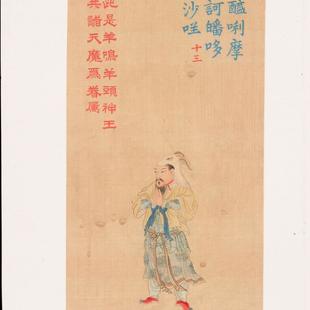 醯唎摩
訶皤哆
沙咩
十三
此是羊鳴羊頭神王
共諸天魔爲眷屬